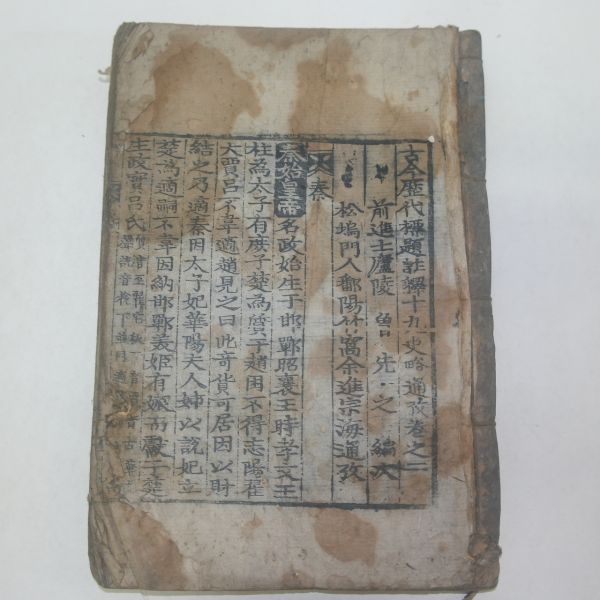 古今歴代標題註釋十九史略通攷卷之二
前進士廬陵曽先之編次
松塢門人鄱陽竹窩余進宗海通攷
秦
秦始皇帝名政始生于邯鄲昭襄王時孝文王
柱為太子有庶子楚為質于趙困不得志陽翟
大賈呂不韋適趙見之曰此奇貨可居因以財
結之乃適秦因太子妃華陽夫人姊以說妃立
楚為適嗣不韋因納邯鄲美姬有娠而獻于楚
生政實呂氏